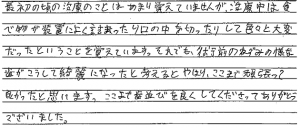 最初の頃の治療のことはあまり覚えていませんが、治療中は食
べ物が装置によくはさまったり口の中を切ったりして色々と大変
だったということを覚えています。それでも、治す前のねずみの様な
歯がこうして綺麗になったと考えるとやはり、ここまで頑張って
良かったと思けます。ここまで歯並びを良くしてくださってありがとう
ございました。